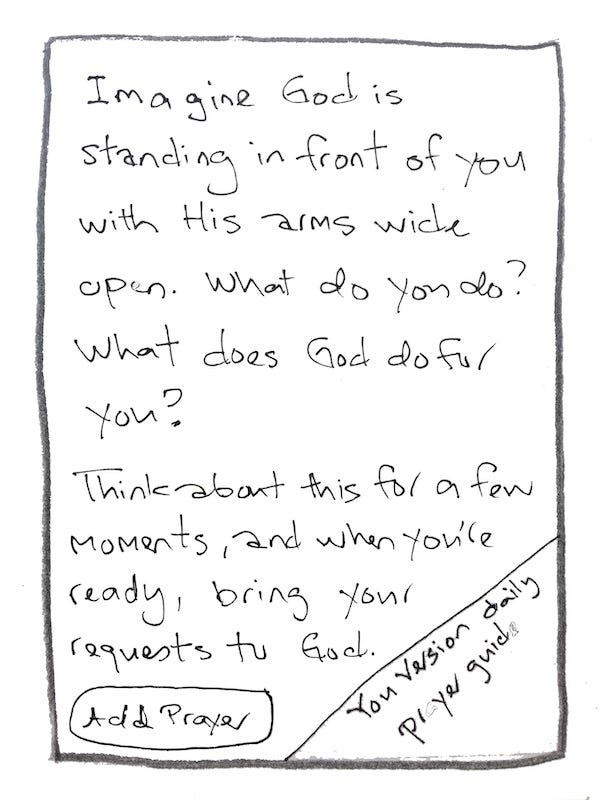 Imagine God is
standing in front of you
with His arms wide
open. What do you do?
What does God do for
you?
Think about this for a few
moments, and when you're
ready, bring your
requests to God.
Add Prayer
YouVersion daily
prayer guide